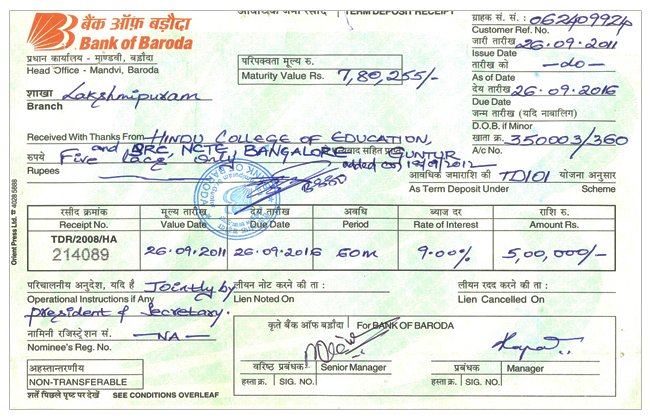 बैंक ऑफ़ बड़ौदा
Bank of Baroda
आवधिक जमा रसीद TERM DEPOSIT RECEIPT
ग्राहक सं. सं. : 062409924
Customer Ref. No.
प्रधान कार्यालय - माण्डवी, बड़ौदा
Head Office - Mandvi, Baroda
जारी तारीख 26.09.2011
Issue Date
परिपक्वता मूल्य रु.
Maturity Value Rs. 7,80,255/-
तारीख को -do-
As of Date
शाखा Lakshmipuram
Branch
देय तारीख 26.09.2016
Due Date
जन्म तारीख (यदि नाबालिग)
D.O.B. if Minor
Received With Thanks From HINDU COLLEGE OF EDUCATION,
खाता क्र. 350003/360
A/c No.
and SRC, NCTE, BANGALORE GUNTUR
रुपये Five lacs only
Rupees
added on 12/09/2012
आवधिक जमाराशि की TD101 योजना अनुसार
As Term Deposit Under Scheme
रसीद क्रमांक मूल्य तारीख देय तारीख अवधि ब्याज दर राशि रु.
Receipt No. Value Date Due Date Period Rate of Interest Amount Rs.
TDR/2008/HA
214089 26.09.2011 26.09.2016 60m 9.00% 5,00,000/-
Orient Press Ltd. ☎ 4028 5888
परिचालनीय अनुदेश, यदि है Jointly by लीयन नोट करने की ता : लीयन रदद करने की ता.
Operational Instructions if Any Lien Noted On Lien Cancelled On
president & Secretary.
नामिनी रजिस्ट्रेशन सं. -NA-
Nominee's Reg. No.
कृते बैंक ऑफ बड़ौदा For BANK OF BARODA
वरिष्ठ प्रबंधक Senior Manager प्रबंधक Manager
हस्ता क्र. SIG. NO. हस्ता क्र. SIG. NO.
अहस्तान्तरणीय
NON-TRANSFERABLE
शर्ते पिछले पृष्ठ पर देखें SEE CONDITIONS OVERLEAF